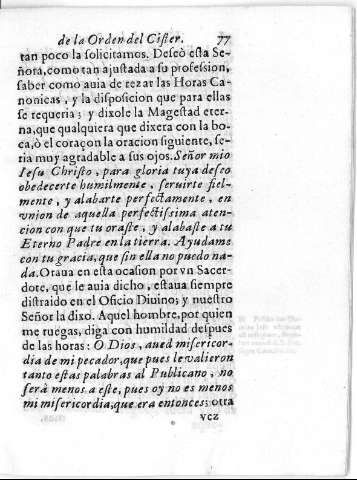 de la Orden del Cister. 77
tan poco la solicitamos. Deseò esta Se-
ñora, como tan ajustada a su profession,
saber como auia de rezar las Horas Ca-
nonicas, y la disposicion que para ellas
se requeria; y dixole la Magestad eter-
na, que qualquiera que dixera con la bo-
ca, ò el coraçon la oracion siguiente, se-
ria muy agradable a sus ojos. Señor mio
Iesu Christo, para gloria tuya deseo
obedecerte humilmente, seruirte fiel-
mente, y alabarte perfectamente, en
vnion de aquella perfectissima aten-
cion con que tu oraste, y alabaste a tu
Eterno Padre en la tierra. Ayudame
con tu gracia, que sin ella no puedo na-
da. Oraua en esta ocasion por vn Sacer-
dote, que le auia dicho, estaua siempre
distraido en el Oficio Diuino; y nuestro
Señor la dixo. Aquel hombre, por quien
me ruegas, diga con humildad despues
de las horas: O Dios, aued misericor-
dia de mi pecador, que pues le valieron
tanto estas palabras al Publicano, no
serà menos a este, pues oy no es menos
mi misericordia, que era entonces; otra
vez